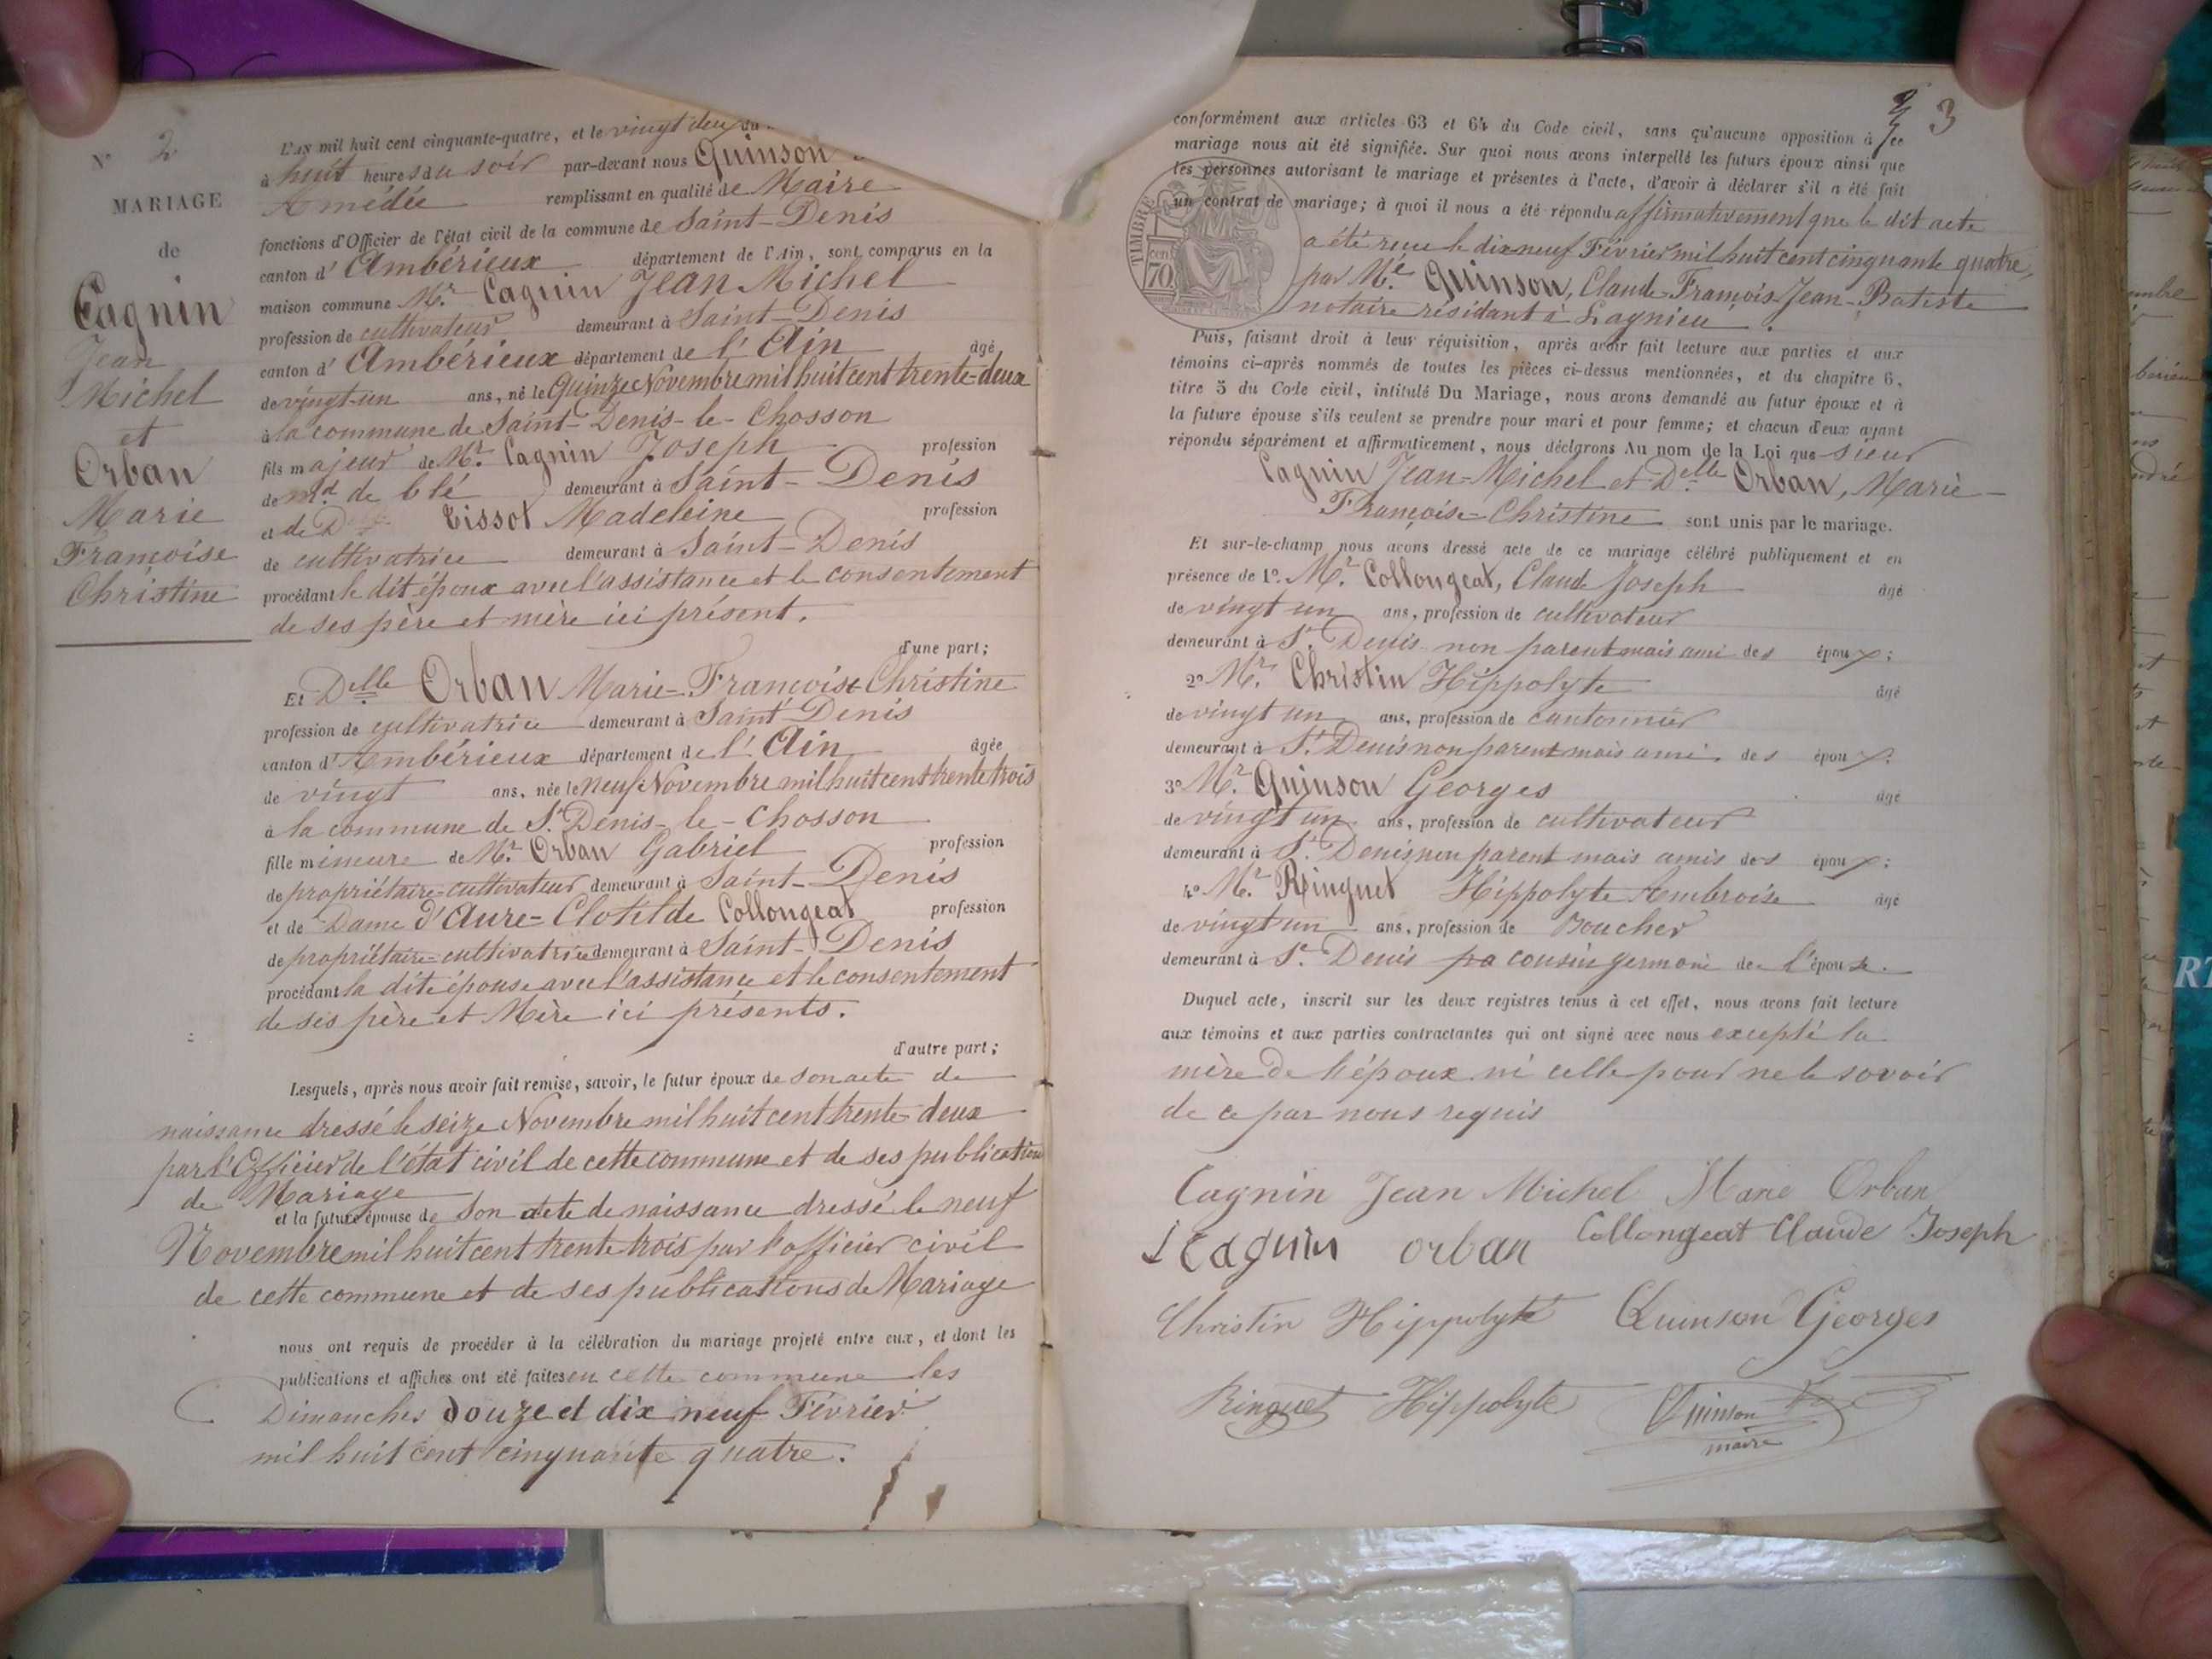 N° 2
MARIAGE
de
Cagnin
Jean
Michel
et
Orban
Marie
Françoise
Christine
L'AN mil huit cent cinquante-quatre, et le vingt deux du
à huit heures du soir par-devant nous Quinson
Amédée remplissant en qualité de Maire
fonctions d'Officier de l'état civil de la commune de Saint-Denis
canton d'Ambérieux département de l'Ain, sont comparus en la
maison commune Mr. Cagnin Jean Michel
profession de cultivateur demeurant à Saint-Denis
canton d'Ambérieux département de l'Ain âgé
de vingt-un ans, né le Quinze Novembre mil huit cent trente-deux
à la commune de Saint-Denis-le-Chosson
fils majeur de Mr. Cagnin Joseph profession
de md. de blé demeurant à Saint-Denis
et de D Tissot Madeleine profession
de cultivatrice demeurant à Saint-Denis
procédant le dit époux avec l'assistance et le consentement
de ses père et mère ici présent.
d'une part;
Et Delle Orban Marie-Françoise Christine
profession de cultivatrice demeurant à Saint Denis
canton d'Ambérieux département de l'Ain âgée
de vingt ans, née le neuf Novembre mil huit cent trente trois
à la commune de St. Denis-le-Chosson
fille mineure de Mr. Orban Gabriel profession
de propriétaire-cultivateur demeurant à Saint-Denis
et de Dame d'Aure-Clotilde Collongeat profession
de propriétaire-cultivatrice demeurant à Saint-Denis
procédant la dite épouse avec l'assistance et le consentement
de ses père et Mère ici présents.
d'autre part;
Lesquels, après nous avoir fait remise, savoir, le futur époux de son acte de
naissance dressé le seize Novembre mil huit cent trente-deux
par l'Officier de l'état civil de cette commune et de ses publication
de Mariage
et la future épouse de son acte de naissance dressé le neuf
Novembre mil huit cent trente trois par l'officier civil
de cette commune et de ses publications de Mariage
nous ont requis de procéder à la célébration du mariage projeté entre eux, et dont les
publications et affiches ont été faites en cette commune les
Dimanches douze et dix neuf Février
mil huit cent cinquante quatre.
3
conformément aux articles 63 et 64 du Code civil, sans qu'aucune opposition à ce
mariage nous ait été signifiée. Sur quoi nous avons interpellé les futurs époux ainsi que
les personnes autorisant le mariage et présentes à l'acte, d'avoir à déclarer s'il a été fait
un contrat de mariage; à quoi il nous a été répondu affirmativement que le dit acte
a été reçu le dix neuf Février mil huit cent cinquante quatre,
par Me. Quinson, Claude-François-Jean-Batiste
notaire résidant à Lagnieu.
TIMBRE
70
Puis, faisant droit à leur réquisition, après avoir fait lecture aux parties et aux
témoins ci-après nommés de toutes les pièces ci-dessus mentionnées, et du chapitre 6,
titre 5 du Code civil, intitulé Du Mariage, nous avons demandé au futur époux et à
la future épouse s'ils veulent se prendre pour mari et pour femme; et chacun d'eux ayant
répondu séparément et affirmativement, nous déclarons Au nom de la Loi que sieur
Cagnin Jean-Michel et Delle Orban, Marie-
Françoise-Christine sont unis par le mariage.
Et sur-le-champ nous avons dressé acte de ce mariage célébré publiquement et en
présence de 1°. Mr. Collongeat, Claude Joseph âgé
de vingt un ans, profession de cultivateur
demeurant à St. Denis non parent mais ami des époux;
2° Mr. Christin Hippolyte âgé
de vingt un ans, profession de cantonnier
demeurant à St. Denis non parent mais ami. des époux.
3° Mr. Quinson Georges âgé
de vingt un ans, profession de cultivateur
demeurant à St. Denis non parent mais amis des époux;
4° Mr. Ringuet Hippolyte Ambroise âgé
de vingt un ans, profession de Boucher
demeurant à St. Denis pa cousin germain de l'épouse.
Duquel acte, inscrit sur les deux registres tenus à cet effet, nous avons fait lecture
aux témoins et aux parties contractantes qui ont signé avec nous excepté la
mère de l'époux ni celle pour ne le savoir
de ce par nous requis
Cagnin Jean Michel Marie Orban
J Cagnin orban Collongeat Claude Joseph
Christin Hippolyte Quinson Georges
Ringuet Hippolyte Quinson
maire